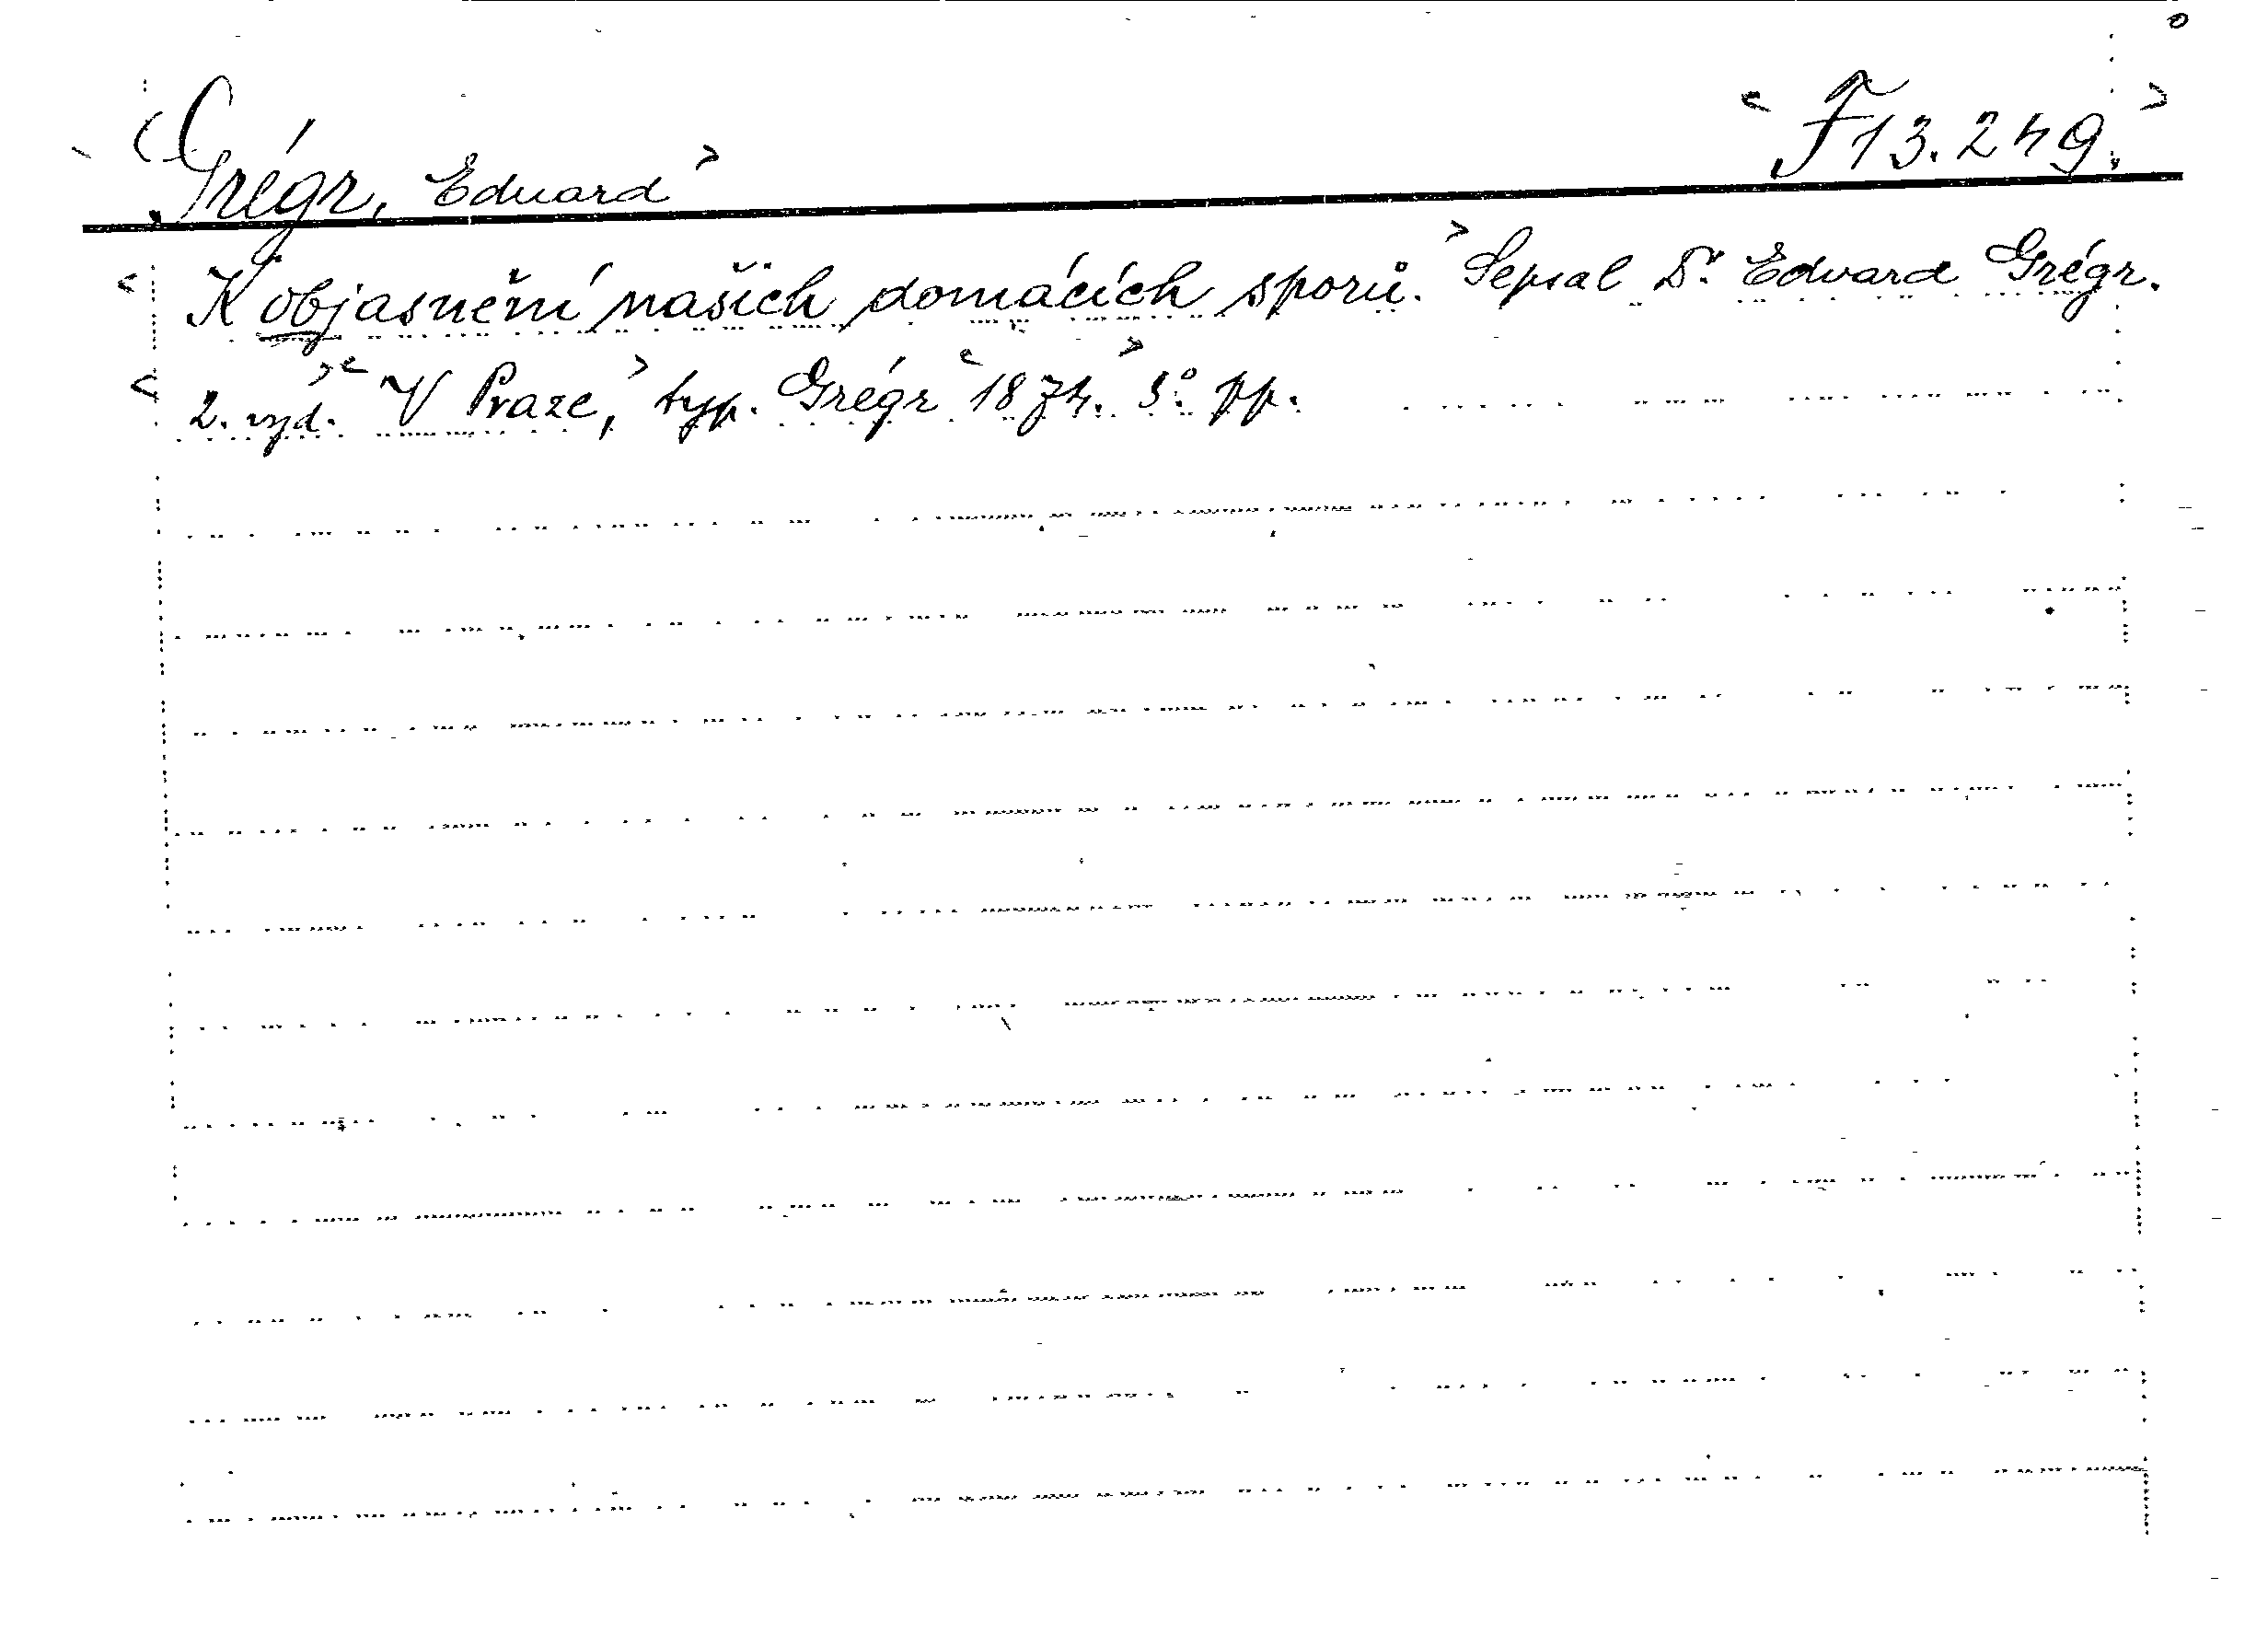 Grégr, Eduard F 13.249.
K objasnění našich domácích sporů. Sepsal Dr. Edvard Grégr.
2. vyd. V Praze, typ. Grégr 1874. 8° pp.